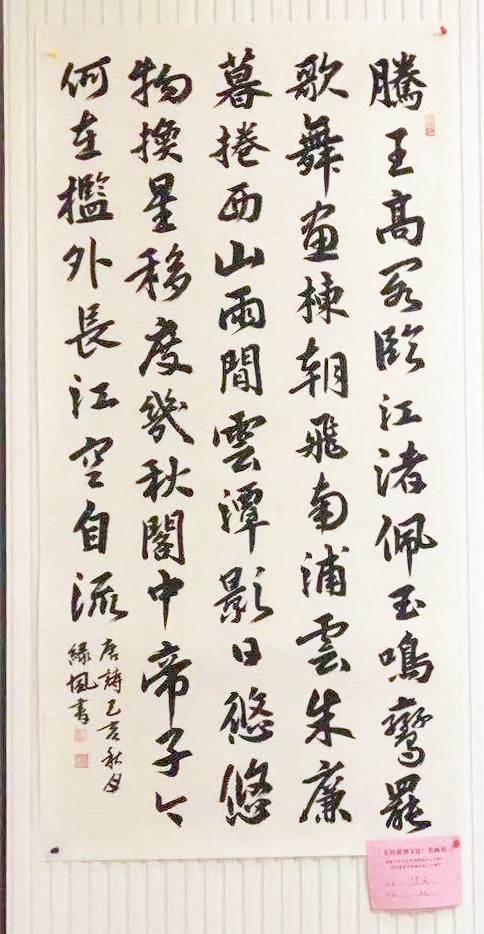 騰王高阁臨江渚佩玉鳴鸞罷
歌舞画棟朝飛南浦雲朱廉
暮捲西山雨間雲潭影日悠悠
物換星移度幾秋閣中帝子今
何在檻外長江空自流
唐詩己亥秋月
緑楓書